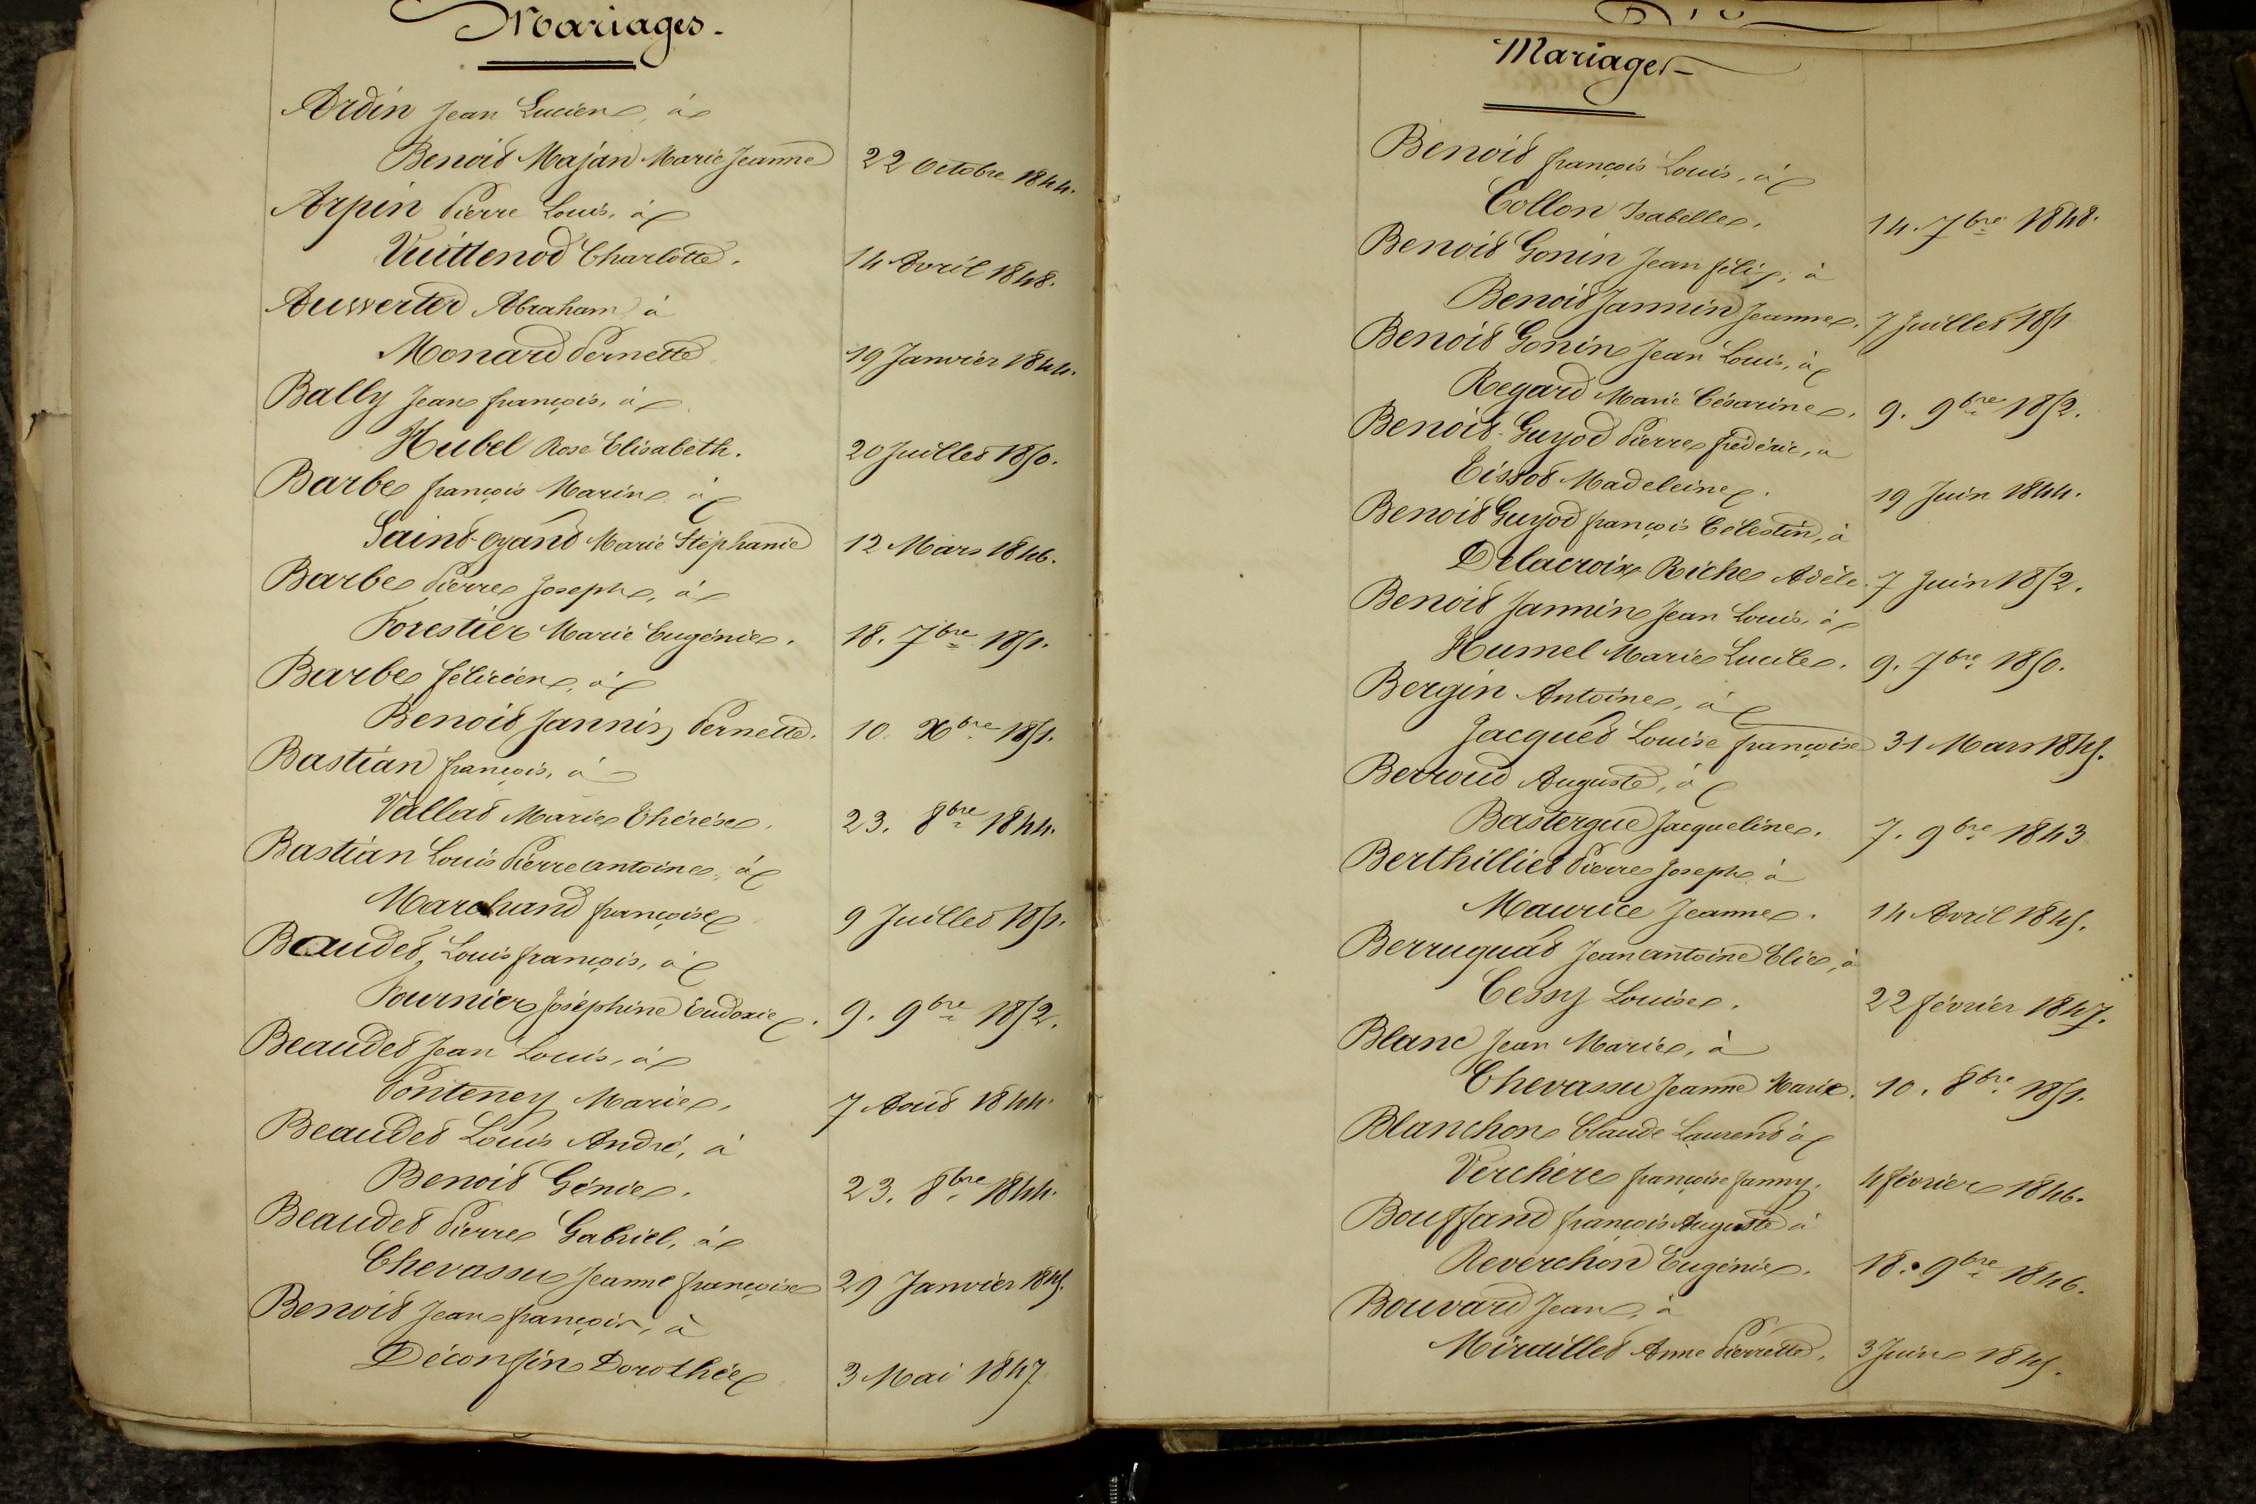 Mariages.
Ardin Jean Lucien, à
Benoit Majan Marie Jeanne 22 Octobre 1844.
Arpin Pierre Louis, à
Vuittenod Charlotte. 14 Avril 1848.
Auwerter Abraham à
Monard Pernette 19 Janvier 1844.
Bally Jean françois, à
Hubel Rose Elisabeth. 20 Juillet 1850.
Barbe françois Marin à
Saint-oyant Marie Stéphanie 12 Mars 1846.
Barbe Pierre Joseph, à
Forestier Marie Eugénie. 18. 7bre 1851.
Barbe félicien, à
Benoit Jannin Pernette. 10. Xbre 1851.
Bastian françois, à
Vallet Marie Thérèse. 23. 8bre 1844.
Bastian Louis Pierre antoine, à
Marchand françoise 9 Juillet 1851.
Baudet, Louis françois, à
Fournier Joséphine Eudoxie. 9. 9bre 1852.
Beaudet Jean Louis, à
Ponteney Marie. 7 Aout 1844.
Beaudet Louis André, à
Benoit Génie. 23. 8bre 1844.
Beaudet Pierre Gabriel, à
Chevassu Jeanne françoise 29 Janvier 1845.
Benoit Jean françois, à
Déconfin Dorothée 3 Mai 1847
Mariages
Benoit françois Louis, à
Collon Isabelle. 14. 7bre 1848.
Benoit Gonin Jean félix, à
Benoit Jannin Jeanne. 7 Juillet 1851
Benoit Gonin Jean Louis, à
Regard Marie Césarine. 9. 9bre 1852.
Benoit-Guyod Pierre frédéric, à
Tissot Madeleine. 19 Juin 1844.
Benoit Guyod françois Célestin, à
Delacroix Riche Adèle. 7 Juin 1852.
Benoit Jannin Jean Louis, à
Humel Marie Lucile. 9. 7bre 1850.
Bergin Antoine, à
Jacquet Louise françoise 31 Mars 1845.
Berroud Auguste, à
Bastergue Jacqueline. 7. 9bre 1843
Berthillier Pierre Joseph à
Maurice Jeanne. 14 Avril 1845.
Berruquat Jean antoine Elie, à
Cessy Louise. 22 février 1847.
Blanc Jean Marie, à
Chevassu Jeanne Marie. 10. 8bre 1851.
Blanchon Claude Laurent à
Verchère françoise fanny. 4 février 1846.
Bouffand françois Auguste à
Reverchon Eugénie. 18. 9bre 1846.
Bouvard Jean, à
Miraillet Anne Pierrette. 3 Juin 1845.